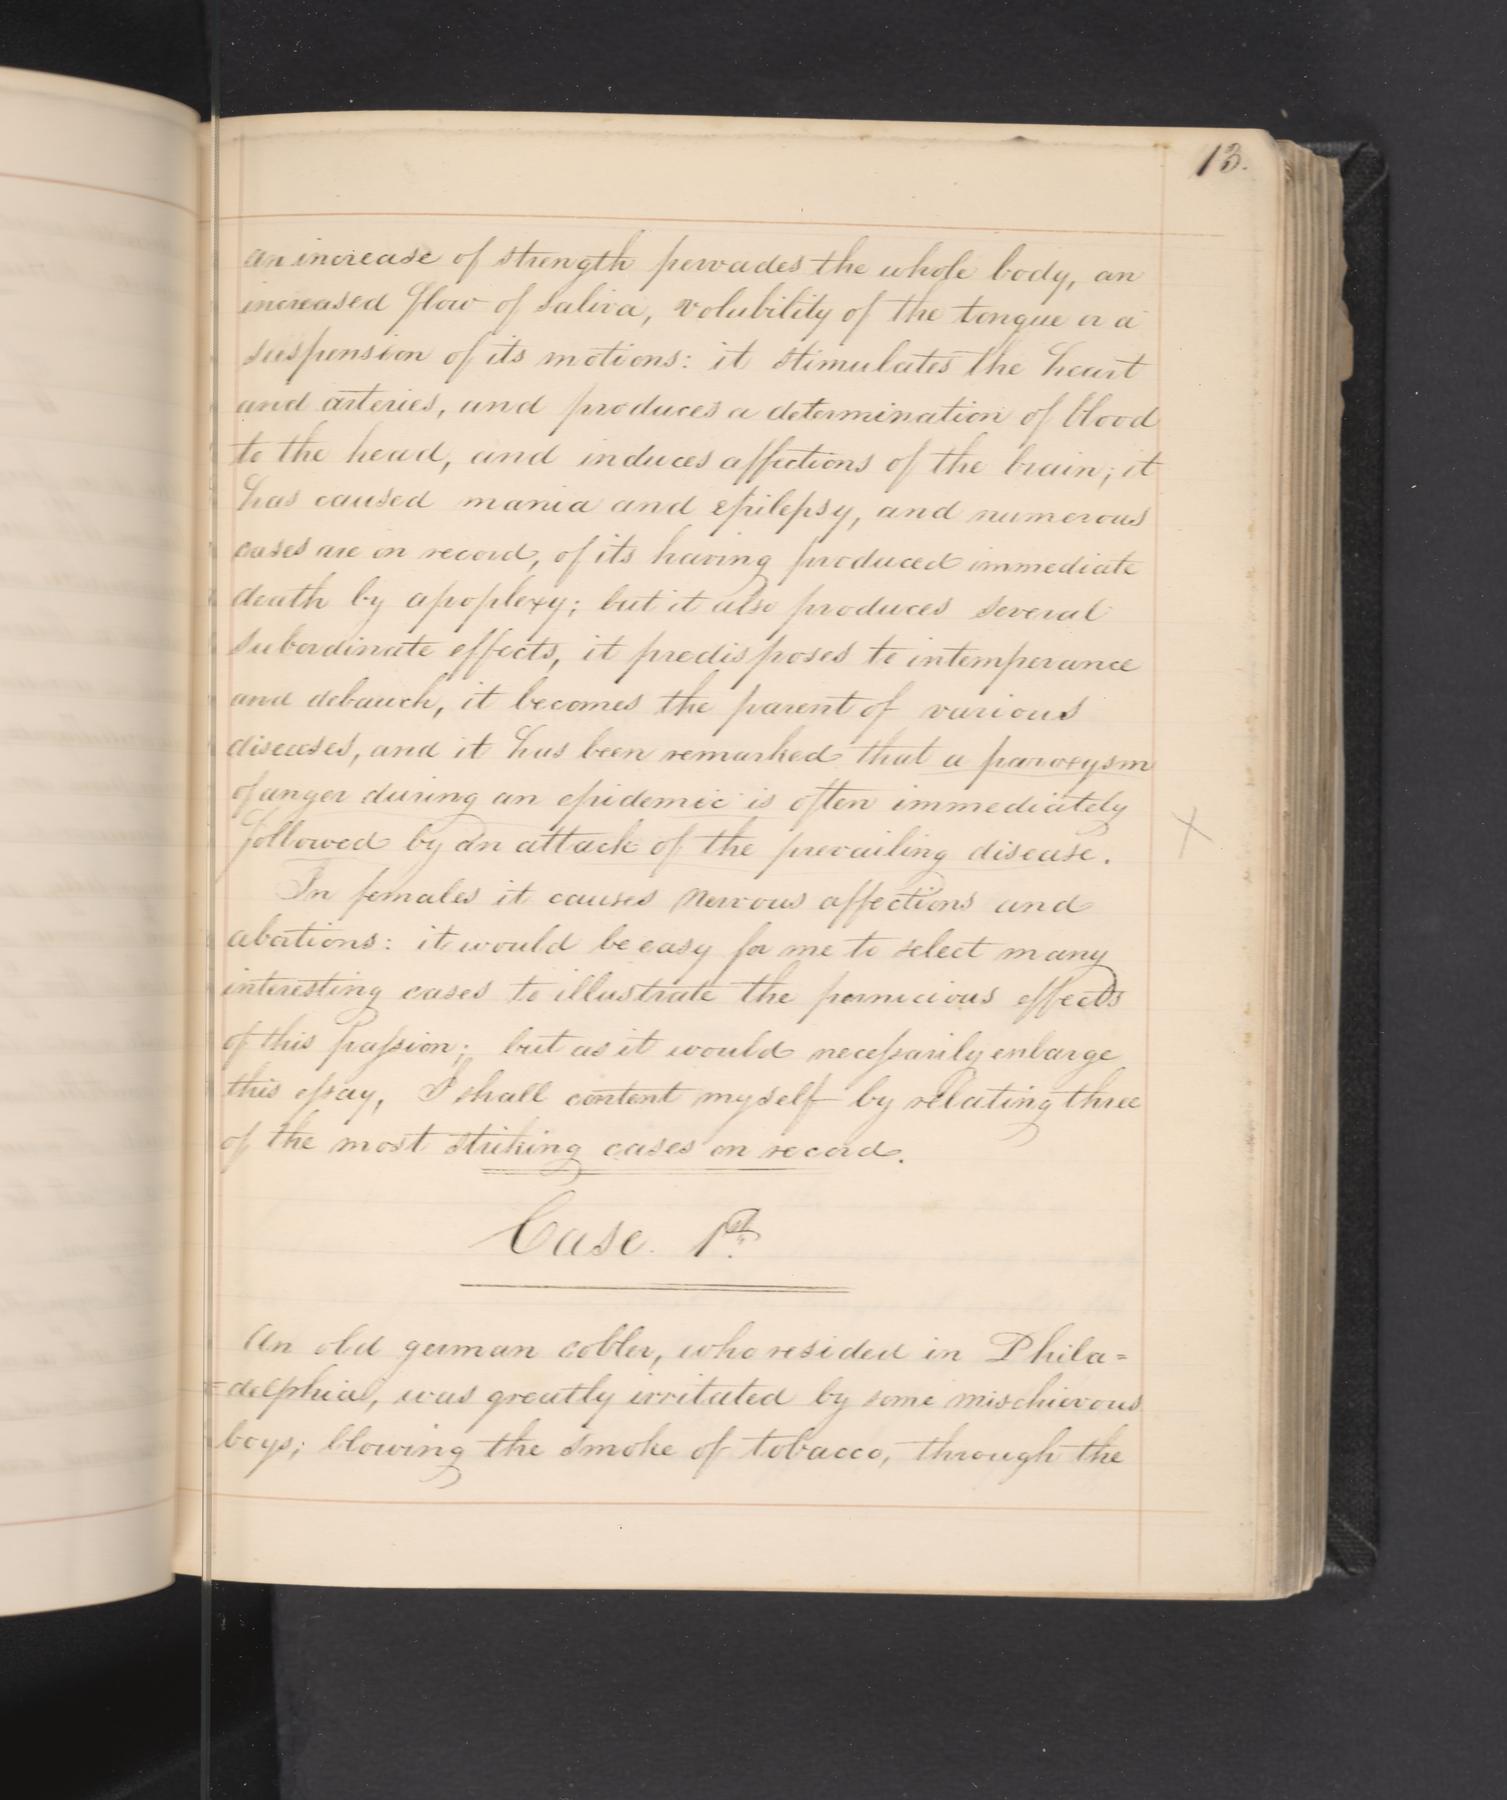 13.
an increase of strength pervades the whole body, an
increased flow of saliva, volubility of the tongue or a
suspension of its motions: it stimulates the heart
and arteries, and produces a determination of blood
to the head, and induces affections of the brain; it
has caused mania and epilepsy, and numerous
cases are on record, of its having produced immediate
death by apoplexy; but it also produces several
subordinate effects, it predisposes to intemperance
and debauch, it becomes the parent of various
diseases, and it has been remarked that a paroxysm
of anger during an epidemic is often immediately
followed by an attack of the prevailing disease.
X
In females it causes nervous affections and
abortions: it would be easy for me to select many
interesting cases to illustrate the pernicious effects
of this paſsion; but as it would neceſsarily enlarge
this eſsay, I shall content myself by relating three
of the most striking cases on record.
Case. 1st.
An old german cobler, who resided in Phila=
=delphia, was greatly irritated by some mischievous
boys; blowing the smoke of tobacco, through the